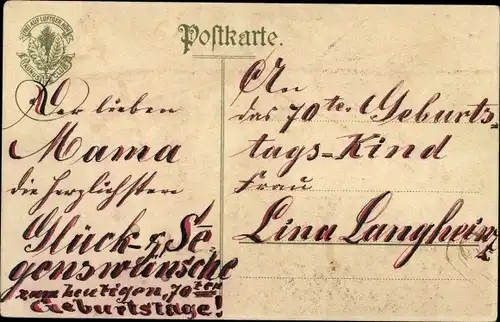 Postkarte.
Der lieben
Mama
die herzlichsten
Glück- & Se-
genswünsche
zum heutigen, 70ten
Geburtstage!
An
das 70te Geburts-
tags-Kind
Frau
Lina Langhein